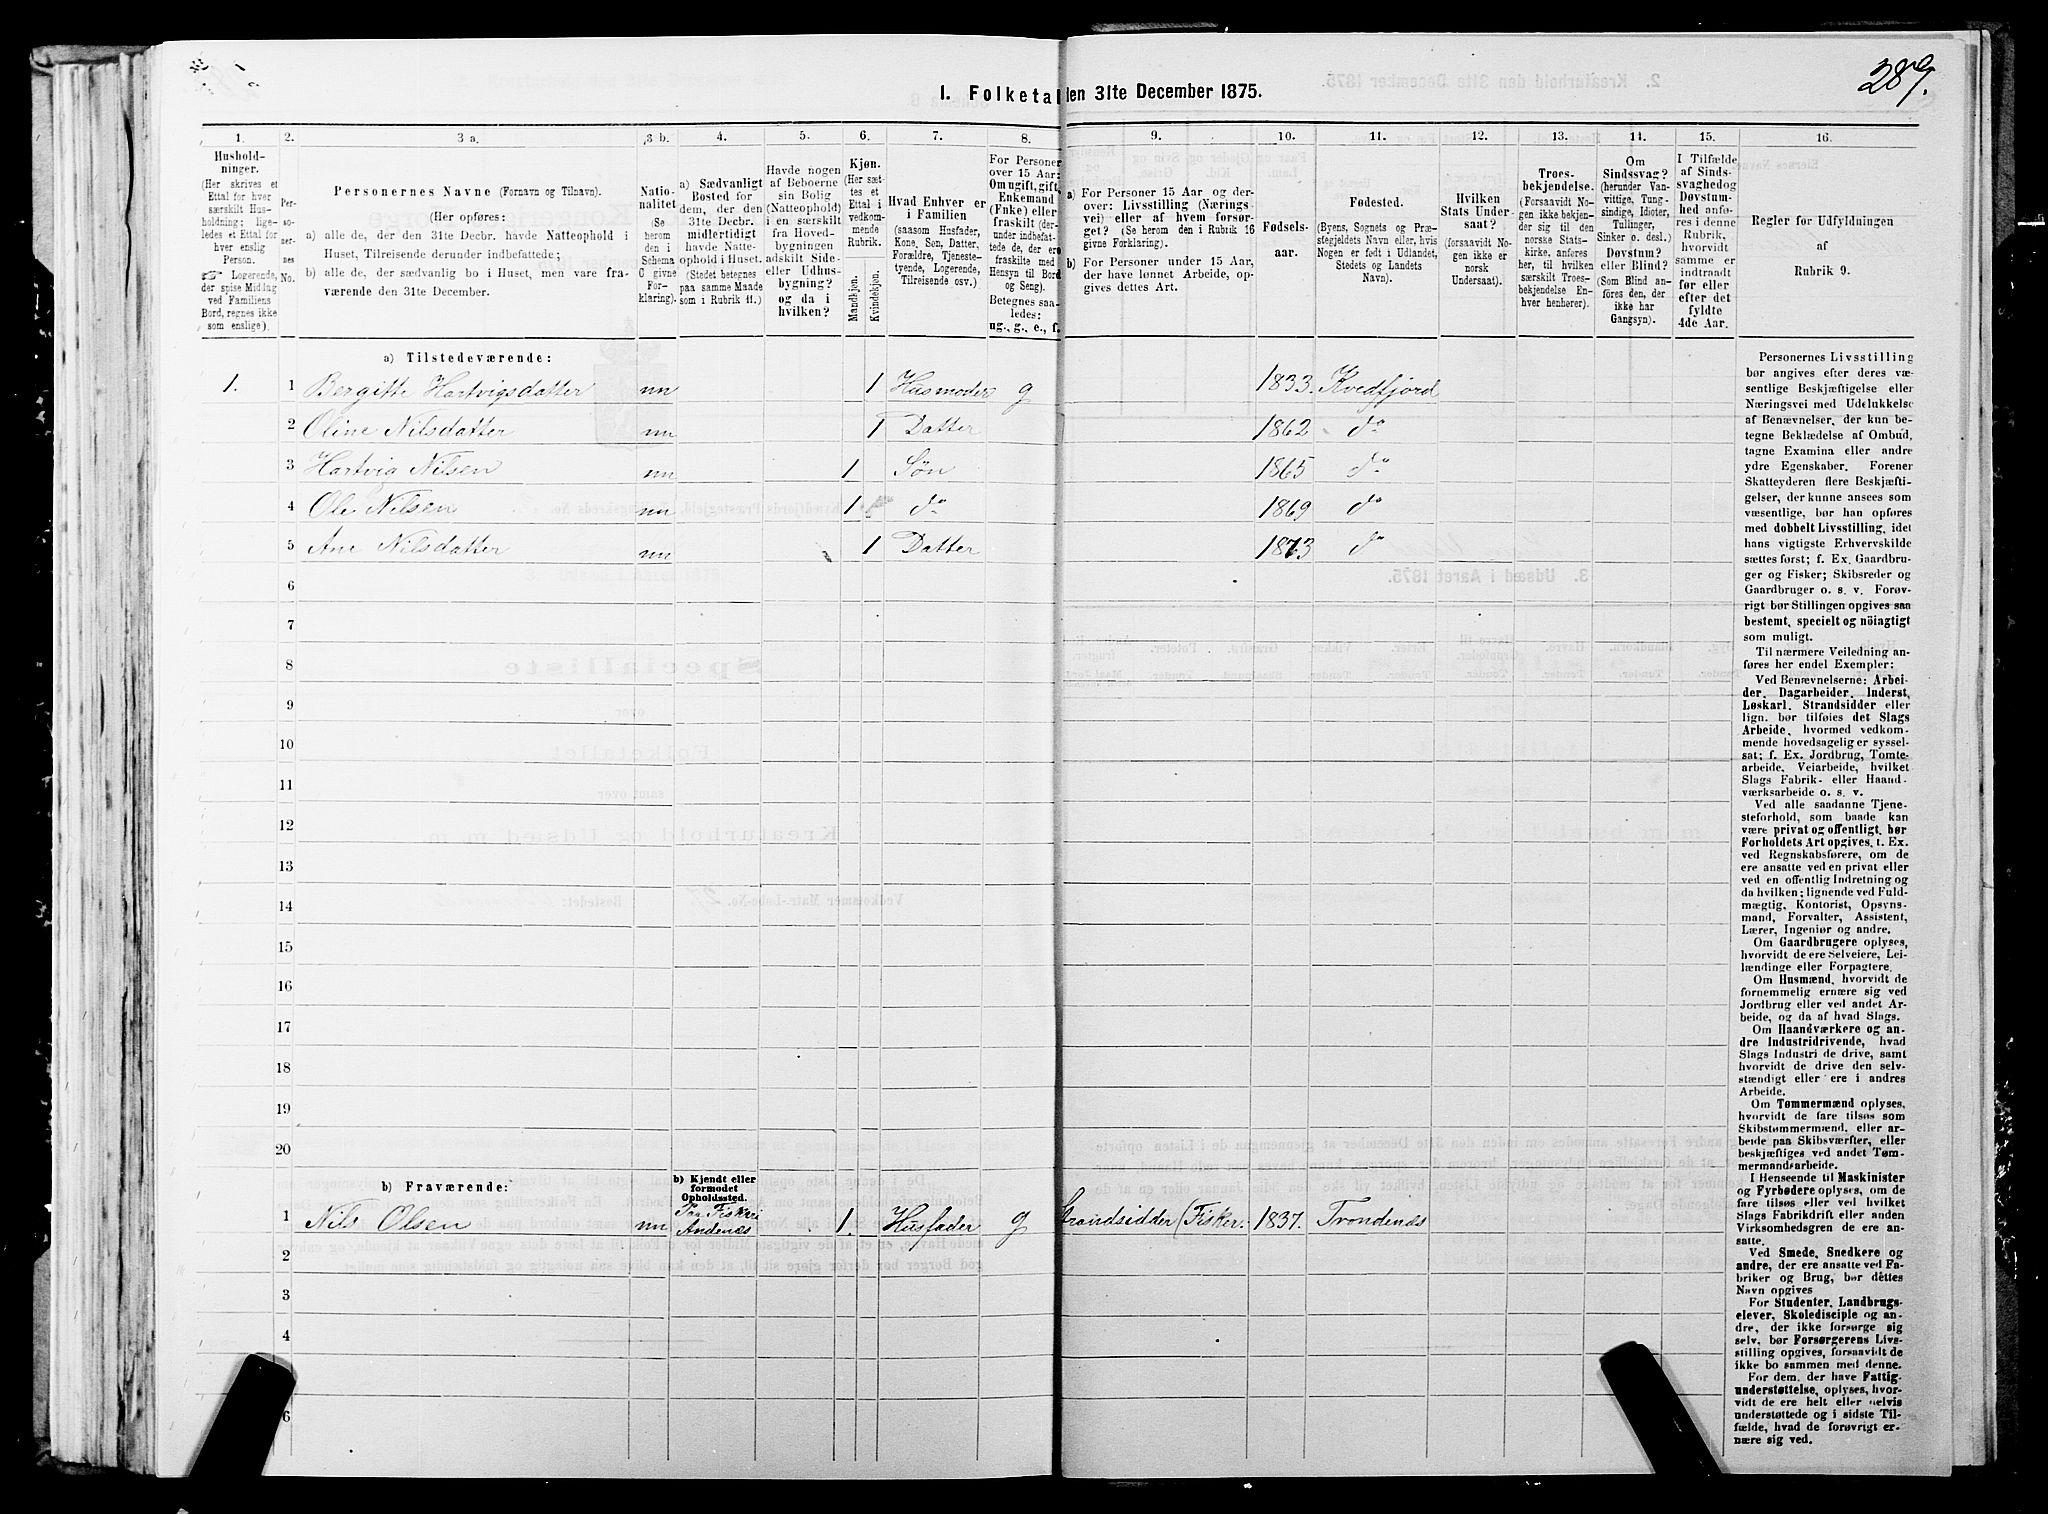 289.
1. Folketal den 31te December 1875.
1. 2. 3 a. 3 b. 4. 5. 6. 7. 8. 9. 10. 11. 12. 13. 14. 15. 16.
Hushold-
ninger.
(Her skrives et
Ettal for hver
særskilt Hus-
holdning; lige-
ledes et Ettal for
hver enslig
Person.
Logerende,
der spise Middag
ved Familiens
Bord, regnes ikke
som enslige).
Per-
so-
ner-
nes
No.
Personernes Navne (Fornavn og Tilnavn).
(Her opføres:
a) alle de, der den 31te Decbr. havde Natteophold i
Huset, Tilreisende derunder indbefattede;
b) alle de, der sædvanlig bo i Huset, men vare fra-
værende den 31te December.
Natio-
nalitet
(Se
herom
den i
Schema
C givne
For-
klaring).
a) Sædvanligt
Bosted for
dem, der den
31te Decbr.
midlertidigt
havde Natte-
ophold i Huset.
(Stedet betegnes
paa samme Maade
som i Rubrik 11.)
Havde nogen
af Beboerne
sin Bolig
(Natteophold)
i en særskilt
fra Hoved-
bygningen
adskilt Side-
eller Udhus-
bygning?
og da i
hvilken?
Kjøn.
(Her sæt-
tes et
Ettal i
vedkom-
mende
Rubrik.
Mandkjøn.
Kvindekjøn.
Hvad Enhver er
i Familien
(saasom Husfader,
Kone, Søn, Datter,
Forældre, Tjeneste-
tyende, Logerende,
Tilreisende osv.)
For Personer
over 15 Aar:
Om ugift, gift,
Enkemand
(Enke) eller
fraskilt (der-
under indbefat-
tede de, der ere
fraskilte med
Hensyn til Bord
og Seng).
Betegnes saa-
ledes:
ug., g., e., f.
a) For Personer 15 Aar og der-
over: Livsstilling (Nærings-
vei) eller af hvem forsør-
get? (Se herom den i Rubrik 16
givne Forklaring).
b) For Personer under 15 Aar,
der have lønnet Arbeide, op-
gives dettes Art.
Fødsels-
aar.
Fødested.
(Byens, Sognets og Præ-
stegjeldets Navn eller, hvis
Nogen er født i Udlandet,
Stedets og Landets
Navn).
Hvilken
Stats Under-
saat?
(forsaavidt No-
gen ikke er
norsk
Undersaat).
Troes-
bekjendelse.
(Forsaavidt No-
gen ikke bekjen-
der sig til den
norske Stats-
kirke, anføres
her, til hvilken
særskilt Troes-
bekjendelse En-
hver henhører).
Om
Sindssvag?
(herunder Van-
vittige, Tung-
sindige, Idioter,
Tullinger,
Sinker o. desl.)
Døvstum?
eller Blind?
(Som Blind an-
føres den, der
ikke har
Gangsyn).
I Tilfælde
af Sinds-
svaghed og
Døvstum-
hed anfø-
res i denne
Rubrik,
hvorvidt
samme er
indtraadt
før eller
efter det
fyldte
4de Aar.
Regler for Udfyldningen
af
Rubrik 9.
a) Tilstedeværende:
1. 1 Bergitte Hartvigsdatter nn 1 Husmoder g 1833. Kvedfjord
2 Oline Nilsdatter nn 1 Datter 1862 do
3 Hartvig Nilsen nn 1 Søn 1865 do
4 Ole Nilsen nn 1 do 1869 do
5 Ane Nilsdatter nn 1 Datter 1873 do
6
7
8
9
10
11
12
13
14
15
16
17
18
19
20
b) Fraværende:
b) Kjendt eller
formodet
Opholdssted.
1 Nils Olsen nn Paa Fiskeri Andenæs 1. Husfader g Strandsidder (Fisker. 1837. Trondenæs
2
3
4
6
Personernes Livsstilling
bør angives efter deres væ-
sentlige Beskjæftigelse eller
Næringsvei med Udelukkelse
af Benævnelser, der kun be-
tegne Beklædelse af Ombud,
tagne Examina eller andre
ydre Egenskaber. Forener
Skatteyderen flere Beskjæfti-
gelser, der kunne ansees som
væsentlige, bør han opføres
med dobbelt Livsstilling, idet
hans vigtigste Erhvervskilde
sættes først; f. Ex. Gaardbru-
ger og Fisker; Skibsreder og
Gaardbruger o. s. v. Forøv-
rigt bør Stillingen opgives saa
bestemt, specielt og nöiagtigt
som muligt.
Til nærmere Veiledning an-
føres her endel Exempler:
Ved Benævnelserne: Arbei-
der, Dagarbeider, Inderst,
Løskarl, Strandsidder eller
lign. bør tilføies det Slags
Arbeide, hvormed vedkom-
mende hovedsagelig er syssel-
sat; f. Ex. Jordbrug, Tomte-
arbeide, Veiarbeide, hvilket
Slags Fabrik- eller Haand-
værksarbeide o. s. v.
Ved alle saadanne Tjene-
steforhold, som baade kan
være privat og offentligt, bør
Forholdets Art opgives, t. Ex.
ved Regnskabsførere, om de
ere ansatte ved en privat eller
ved en offentlig Indretning og
da hvilken; lignende ved Fuld-
mægtig, Kontorist, Opsyns-
mand, Forvalter, Assistent,
Lærer, Ingeniør og andre.
Om Gaardbrugere oplyses,
hvorvidt de ere Selveiere, Lei-
lændinge eller Forpagtere.
Om Husmænd, hvorvidt de
fornemmelig ernære sig ved
Jordbrug eller ved andet Ar-
beide, og da af hvad Slags.
Om Haandværkere og an-
dre Industridrivende, hvad
Slags Industri de drive, samt
hvorvidt de drive den selv-
stændigt eller ere i andres
Arbeide.
Om Tømmermænd oplyses,
hvorvidt de fare tilsøs som
Skibstømmermænd, eller ar-
beide paa Skibsværfter, eller
beskjæftiges ved andet Tøm-
mermandsarbeide.
I Henseende til Maskinister
og Fyrbødere oplyses, om de
fare tilsøs eller ved hvilket
Slags Fabrikdrift eller anden
Virksomhedsgren de ere an-
satte.
Ved Smede, Snedkere og
andre, der ere ansatte ved Fa-
briker og Brug, bør dettes
Navn opgives
For Studenter, Landbrugs-
elever, Skoledisciple og an-
dre, der ikke forsørge sig
selv, bør Forsørgerens Livs-
stilling opgives, forsaavidt de
ikke bo sammen med denne.
For dem, der have Fattig-
understøttelse, oplyses, hvor-
vidt de ere helt eller delvis
understøttede og i sidste Til-
fælde, hvad de forøvrigt er-
nære sig ved.